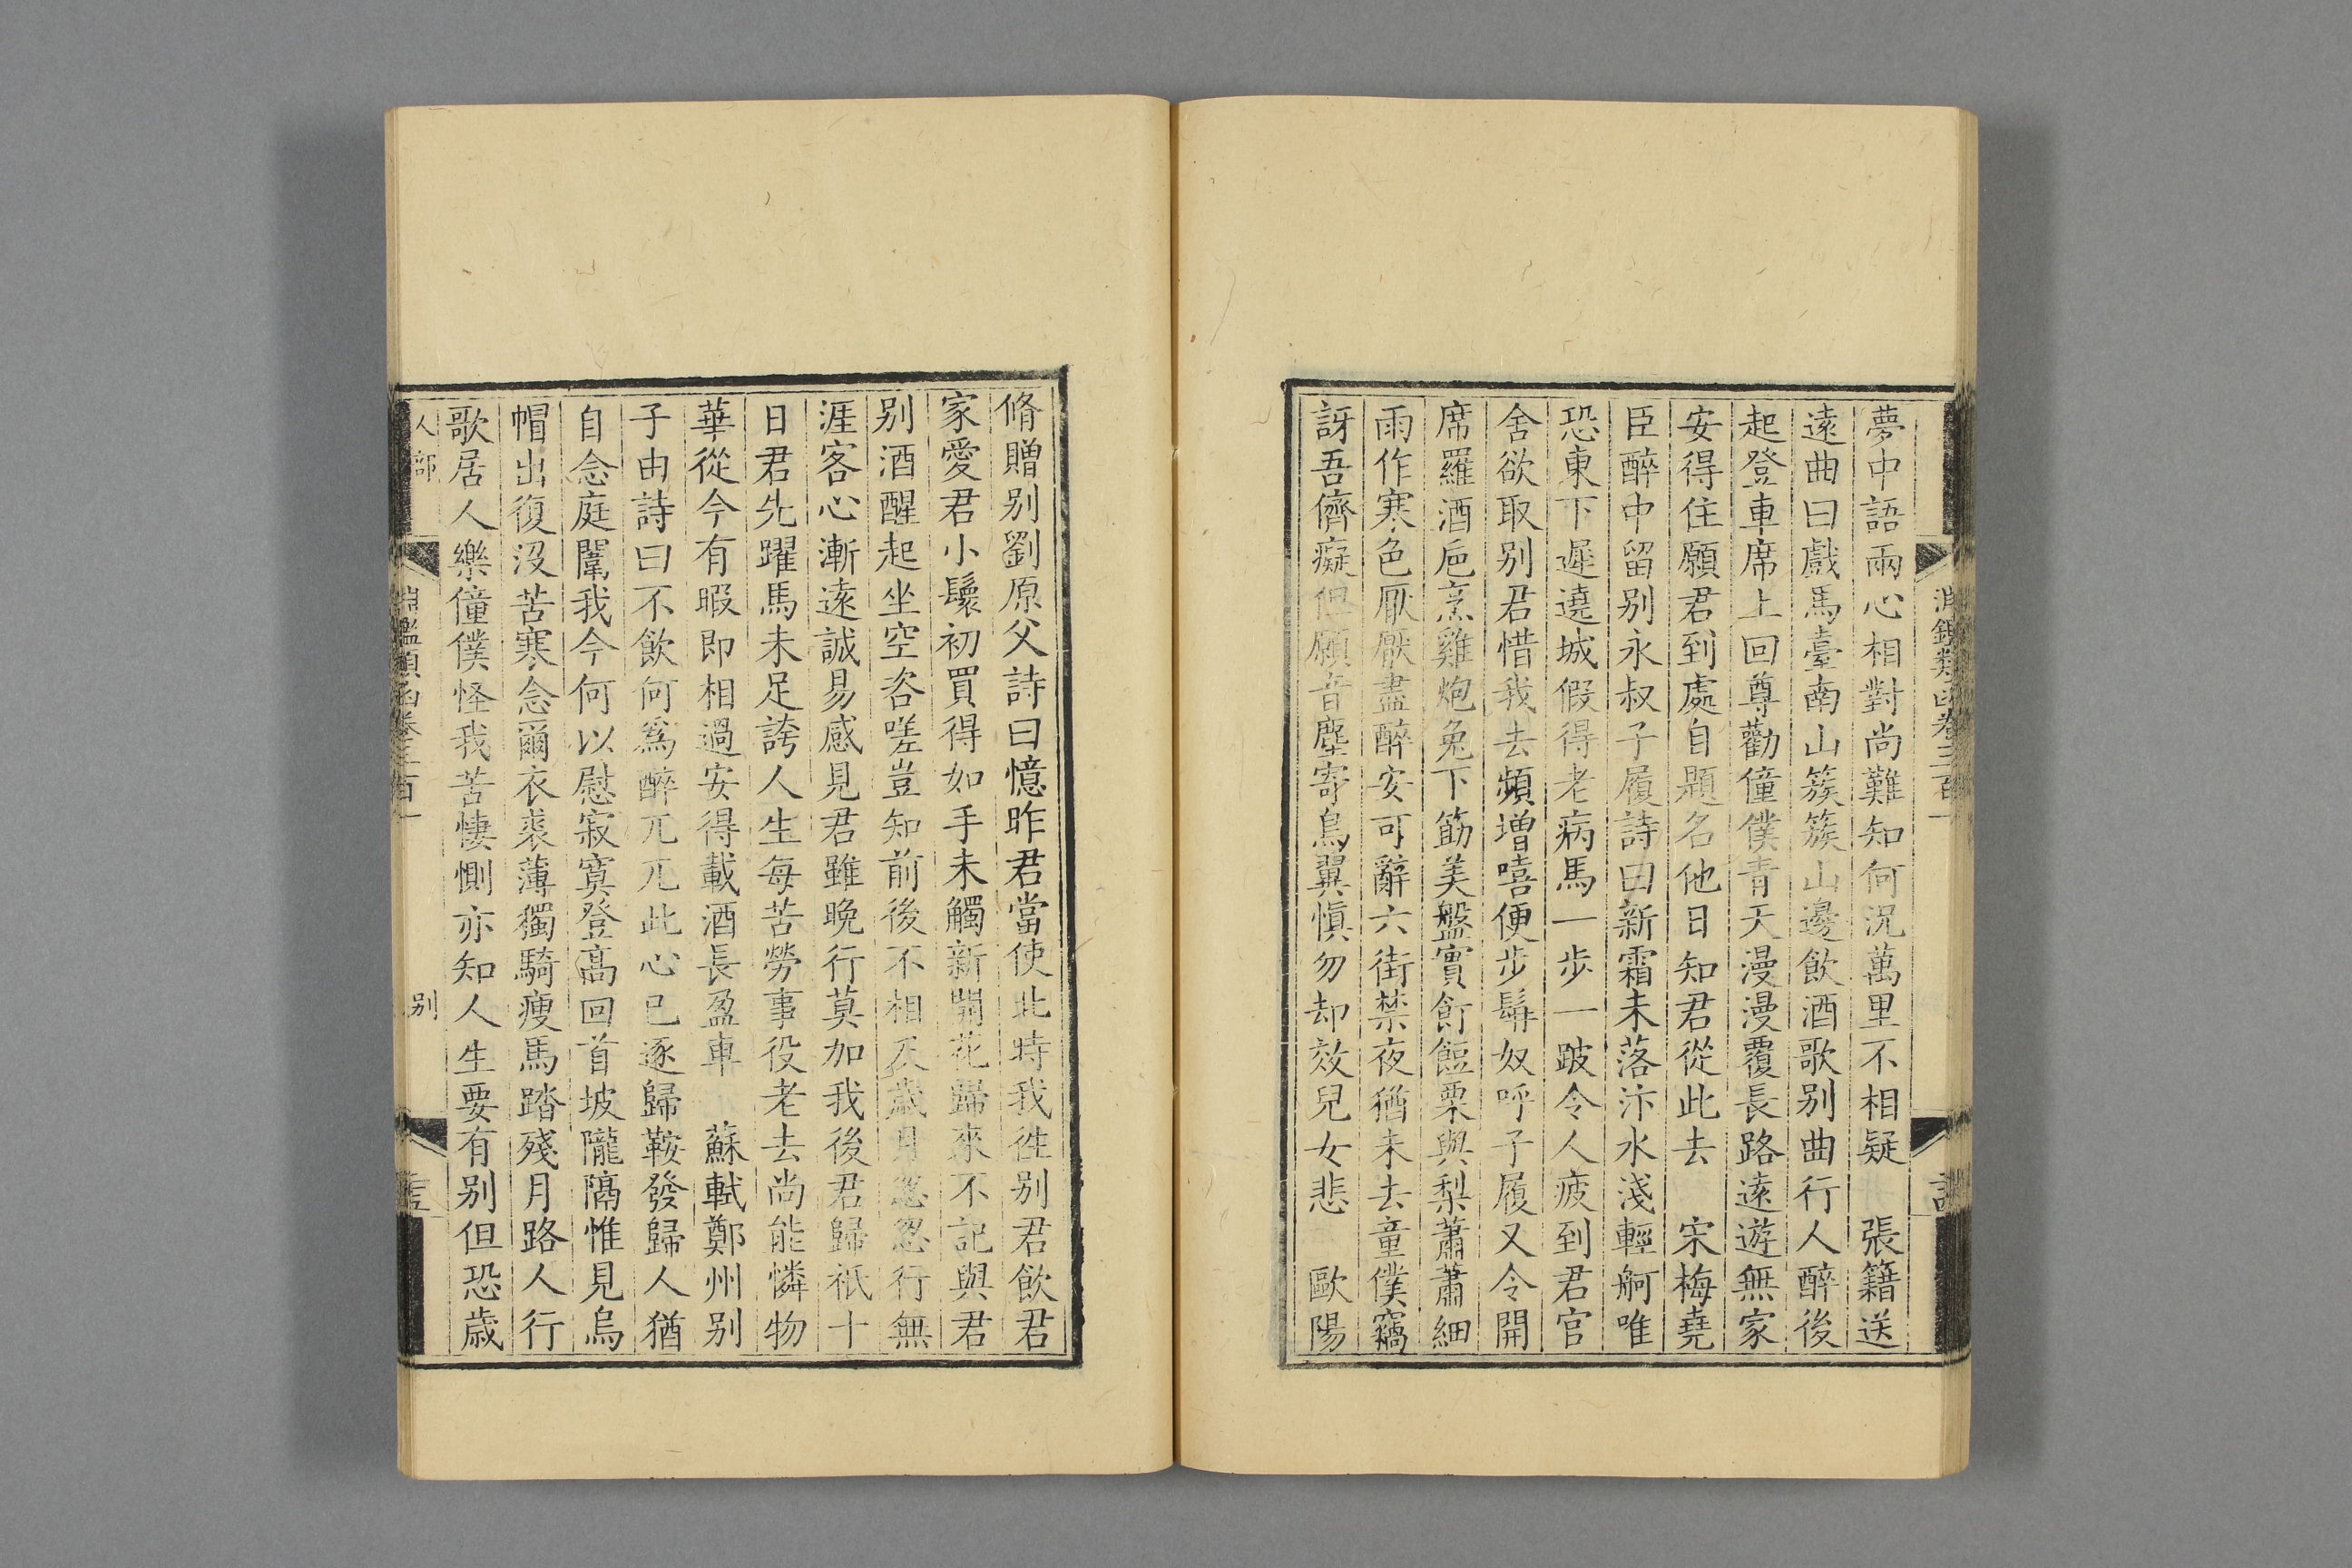 夢中語兩心相對尚難知何況萬里不相疑　張籍送
遠曲曰戲馬臺南山簇簇山邊飲酒歌别曲行人醉後
起登車席上回尊勸僮僕青天漫漫覆長路遠遊無家
安得住願君到處自題名他日知君從此去　宋梅堯
臣醉中留别永叔子履詩曰新霜未落汴水淺輕舸唯
恐東下遲遶城假得老病馬一步一跛令人疲到君官
舍欲取别君惜我去頻增嘻便步髯奴呼子履又令開
席羅酒巵烹雞炮兔下筯美盤實飣餖栗與梨蕭蕭細
雨作寒色厭厭盡醉安可辭六街禁夜猶未去童僕竊
訝吾儕癡但願音塵寄鳥翼愼勿却效兒女悲　歐陽
脩贈别劉原父詩曰憶昨君當使北時我徃别君飲君
家愛君小鬟初買得如手未觸新開花歸來不記與君
别酒醒起坐空咨嗟豈知前後不相及歲月忽忽行無
涯客心漸遠誠易感見君雖晚行莫加我後君歸祇十
日君先躍馬未足誇人生每苦勞事役老去尚能憐物
華從今有暇即相過安得載酒長盈車　蘇軾鄭州别
子由詩曰不飲何爲醉兀兀此心已逐歸鞍發歸人猶
自念庭闈我今何以慰寂寞登高回首坡隴隔惟見烏
帽出復没苦寒念爾衣裘薄獨騎瘦馬踏殘月路人行
歌居人樂僮僕怪我苦悽惻亦知人生要有别但恐歲
人部
淵鑑類函卷三百一
别